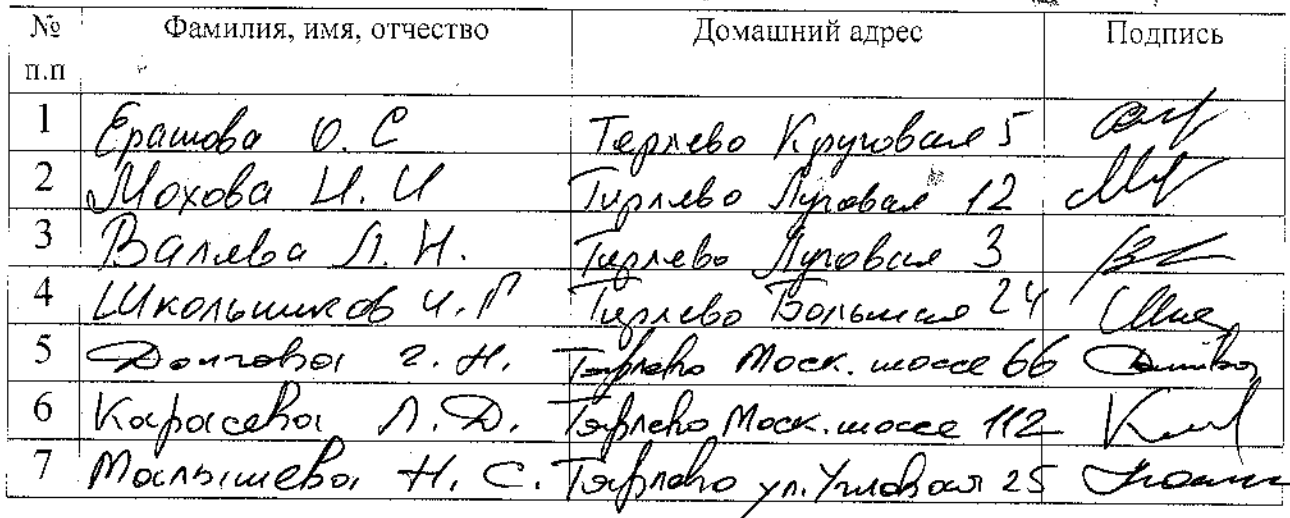 № п.п Фамилия, имя, отчество Домашний адрес Подпись
1 Ерашова О. С Терлево Круговая 5
2 Мохова И. И Тирлево Луговая 12
3 Валяева Л. Н. Терлево Луговая 3
4 Школьников И. П Терлево Большая 24
5 Долгова Г. Н. Тярлево Моск. шоссе 66
6 Карасева Л. Д. Тярлево Моск. шоссе 112
7 Малышева Н. С. Тярлево ул. Угловая 25